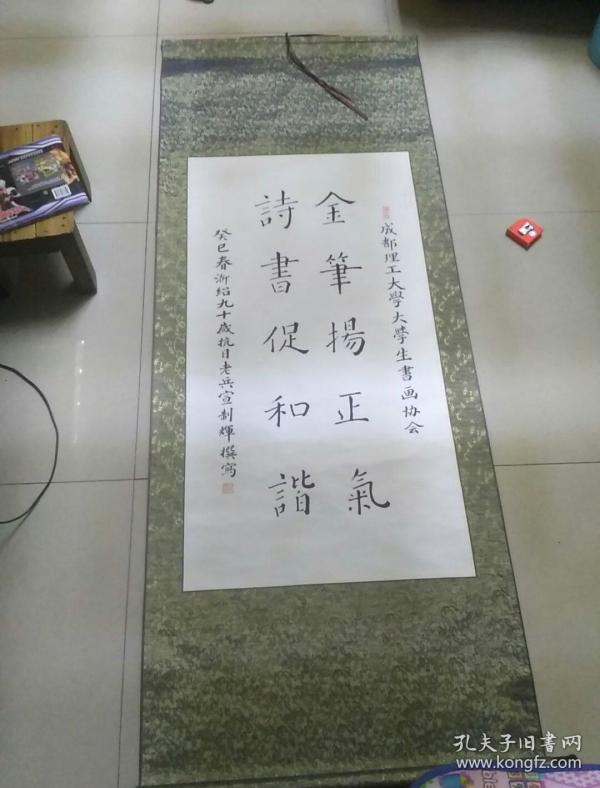 成都理工大學大學生書画协会
金筆揚正氣
詩書促和諧
癸巳春浙紹九十歲抗日老兵宣制輝撰寫
孔夫子旧書网
www.kongfz.com